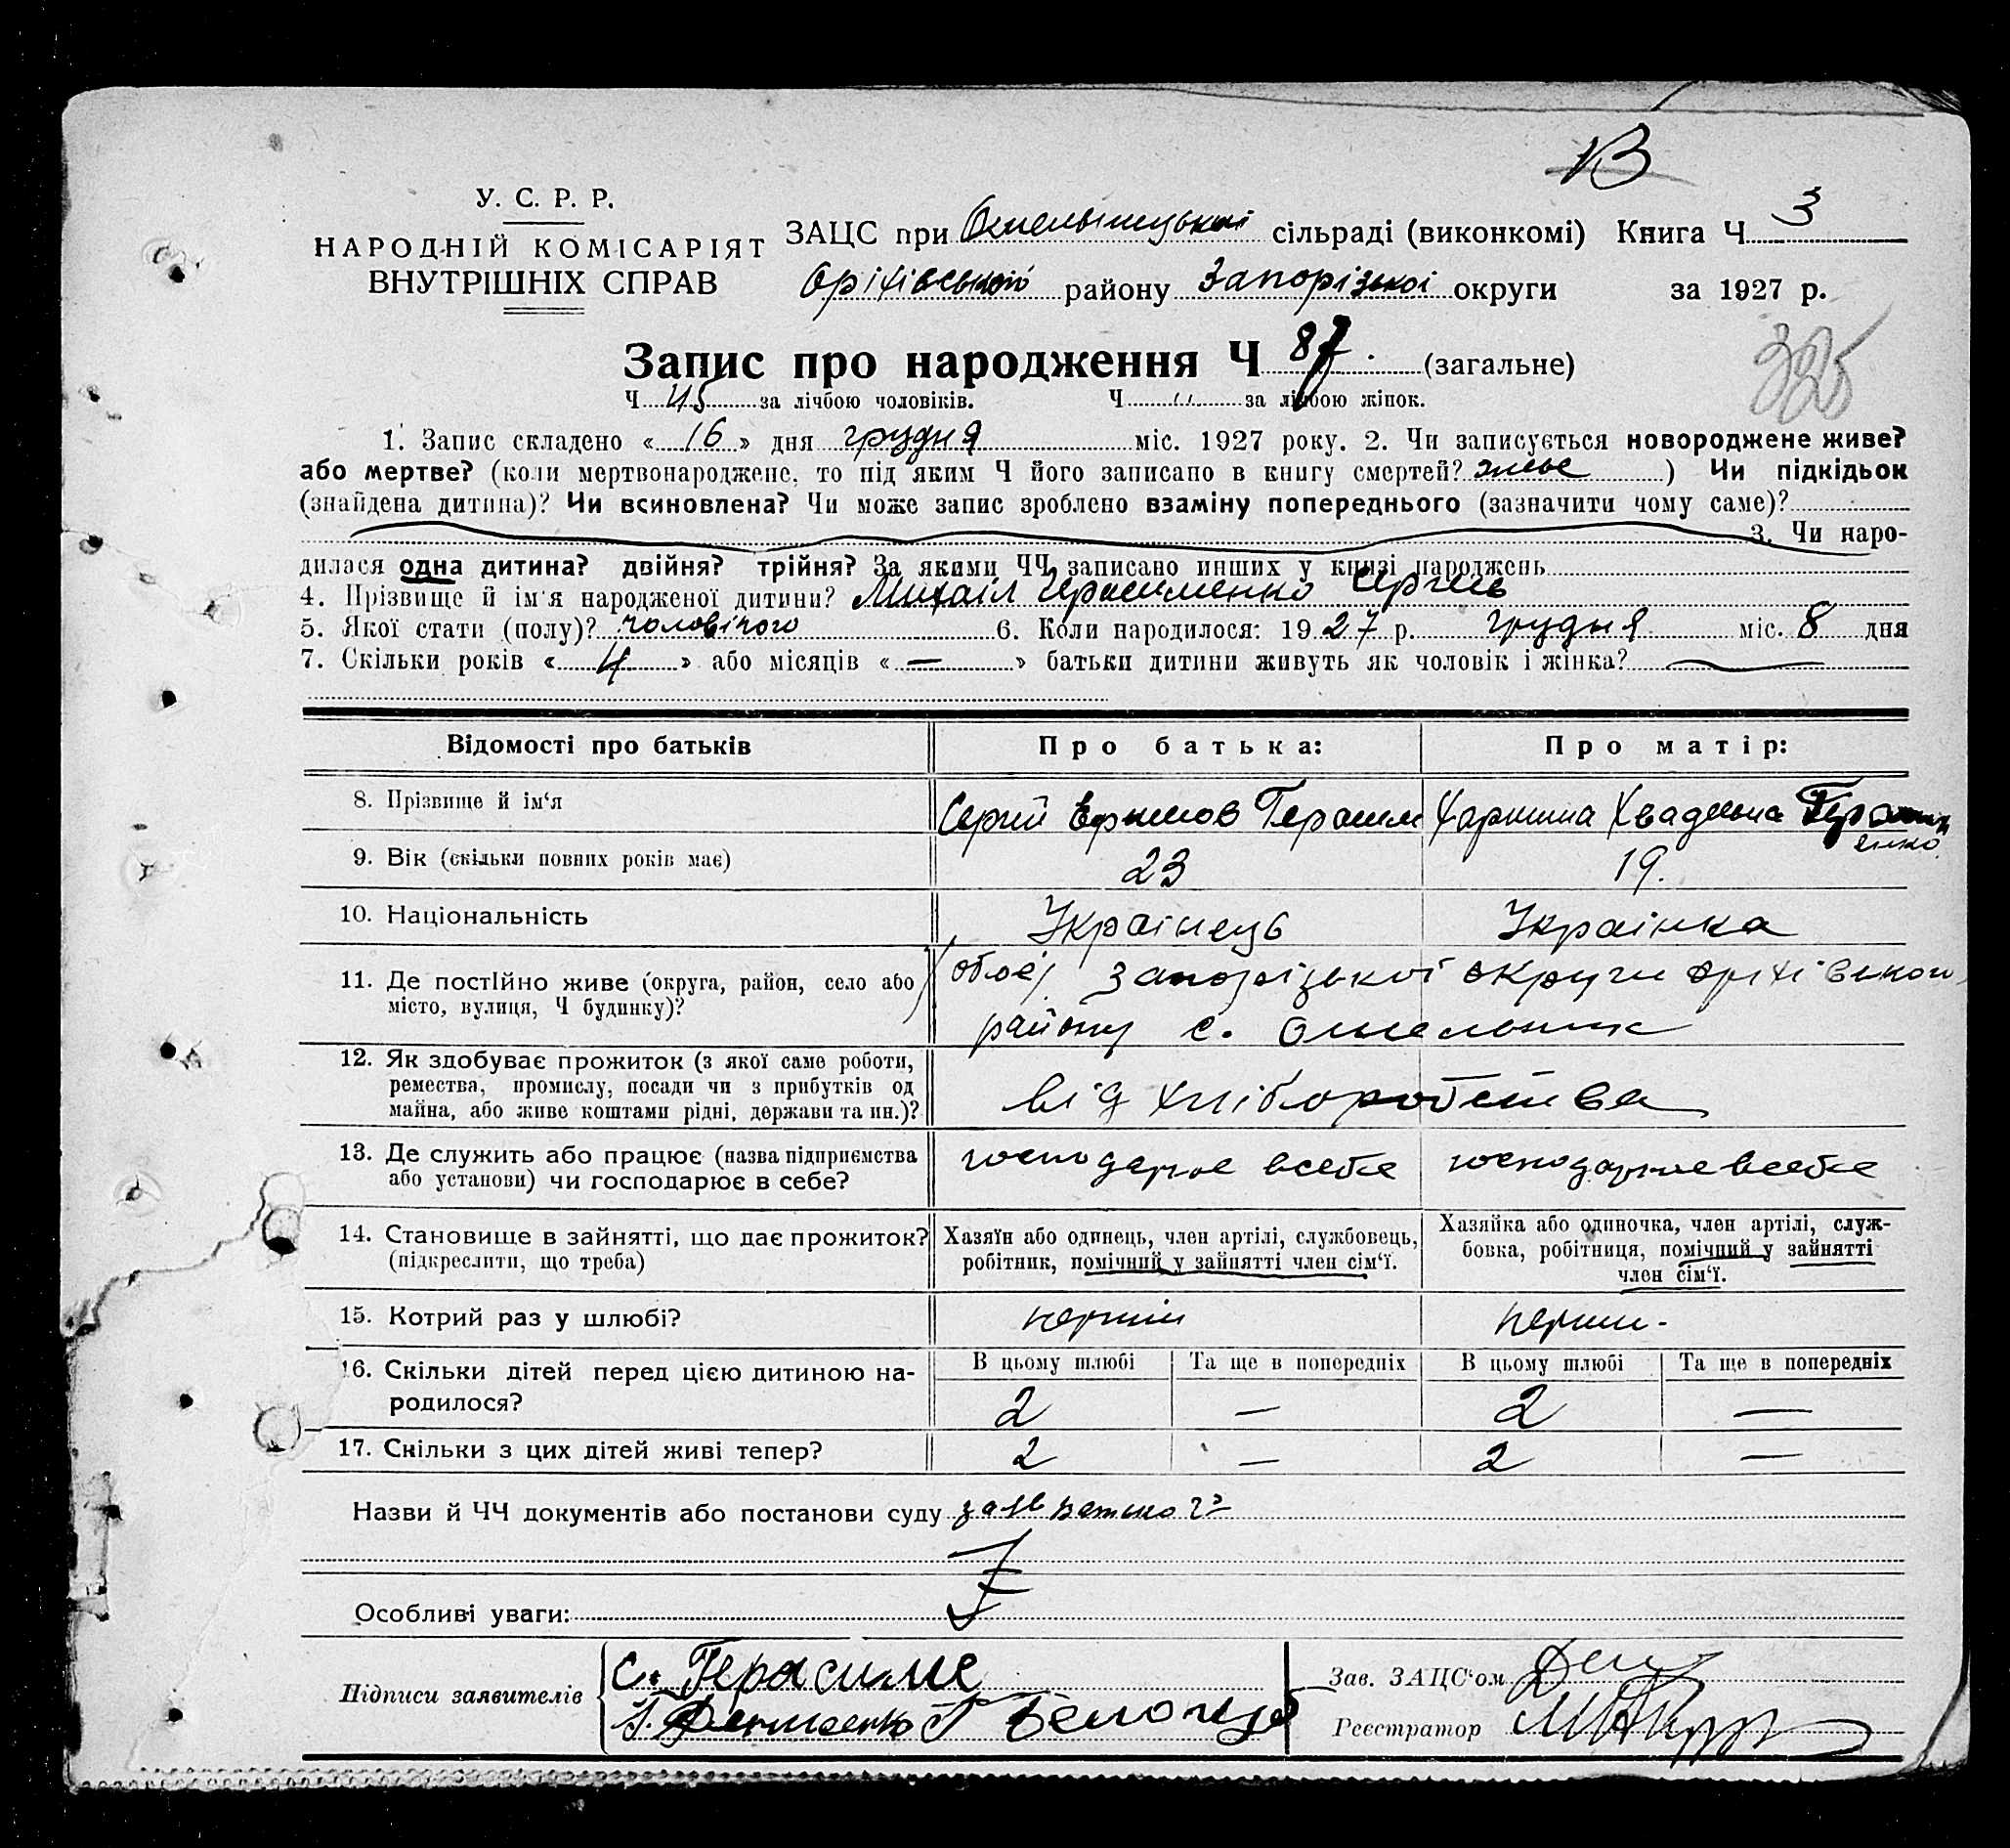 В
У. С. Р. Р.
НАРОДНІЙ КОМІСАРІЯТ
ВНУТРІШНІХ СПРАВ
ЗАЦС при Омельницькій сільраді (виконкомі) Книга Ч. 3
Оріхівської району Запорізької округи за 1927 р.
325
Запис про народження Ч 87. (загальне)
Ч 45 за лічбою чоловіків. Ч „ за лічбою жінок.
1. Запис складено « 16 » дня грудня міс. 1927 року. 2. Чи записується новороджене живе?
або мертве? (коли мертвонароджене, то під яким Ч його записано в книгу смертей? живе ) Чи підкідьок
(знайдена дитина)? Чи всиновлена? Чи може запис зроблено взаміну попереднього (зазначити чому саме)?
3. Чи наро-
дилася одна дитина? двійня? трійня? За якими ЧЧ записано инших у книзі народжень
4. Прізвище й ім'я народженої дитини? Михаіл Герасименко Сергієв
5. Якої стати (полу)? чоловічого 6. Коли народилося: 19 27 р. грудня міс. 8 дня
7. Скільки років « 4 » або місяців « — » батьки дитини живуть як чоловік і жінка? —
Відомості про батьків Про батька: Про матір:
8. Прізвище й ім'я Сергій Ефимов Герасим Харитина Хвадеевна Герасим
енко
9. Вік (скільки повних років має) 23 19.
10. Національність Українець Українка
11. Де постІйно живе (округа, район, село або обоє) Запоріцької округи Оріхівского
місто, вулиця, Ч будинку)? району с. Омельник
12. Як здобуває прожиток (з якої саме роботи,
ремества, промислу, посади чи з прибутків од від хліборобства
майна, або живе коштами рідні, держави та ин.)?
13. Де служить або працює (назва підприємства господарює всебе господарює всебе
або установи) чи господарює в себе?
14. Становище в зайнятті, що дає прожиток? Хазяїн або одинець, член артілі, службовець, Хазяйка або одиночка, член артілі, служ-
(підкреслити, що треба) робітник, помічний у зайнятті член сім'ї. бовка, робітниця, помічний у зайнятті
член сім'ї.
15. Котрий раз у шлюбі? перший перши-
16. Скільки дітей перед цією дитиною на- В цьому шлюбі Та ще в попередніх В цьому шлюбі Та ще в попередніх
родилося? 2 — 2 —
17. Скільки з цих дітей живі тепер? 2 — 2 —
Назви й ЧЧ документів або постанови суду
Особливі уваги:
С. Герасиме
Підписи заявителів
Зав. ЗАЦС'ом
Реєстратор